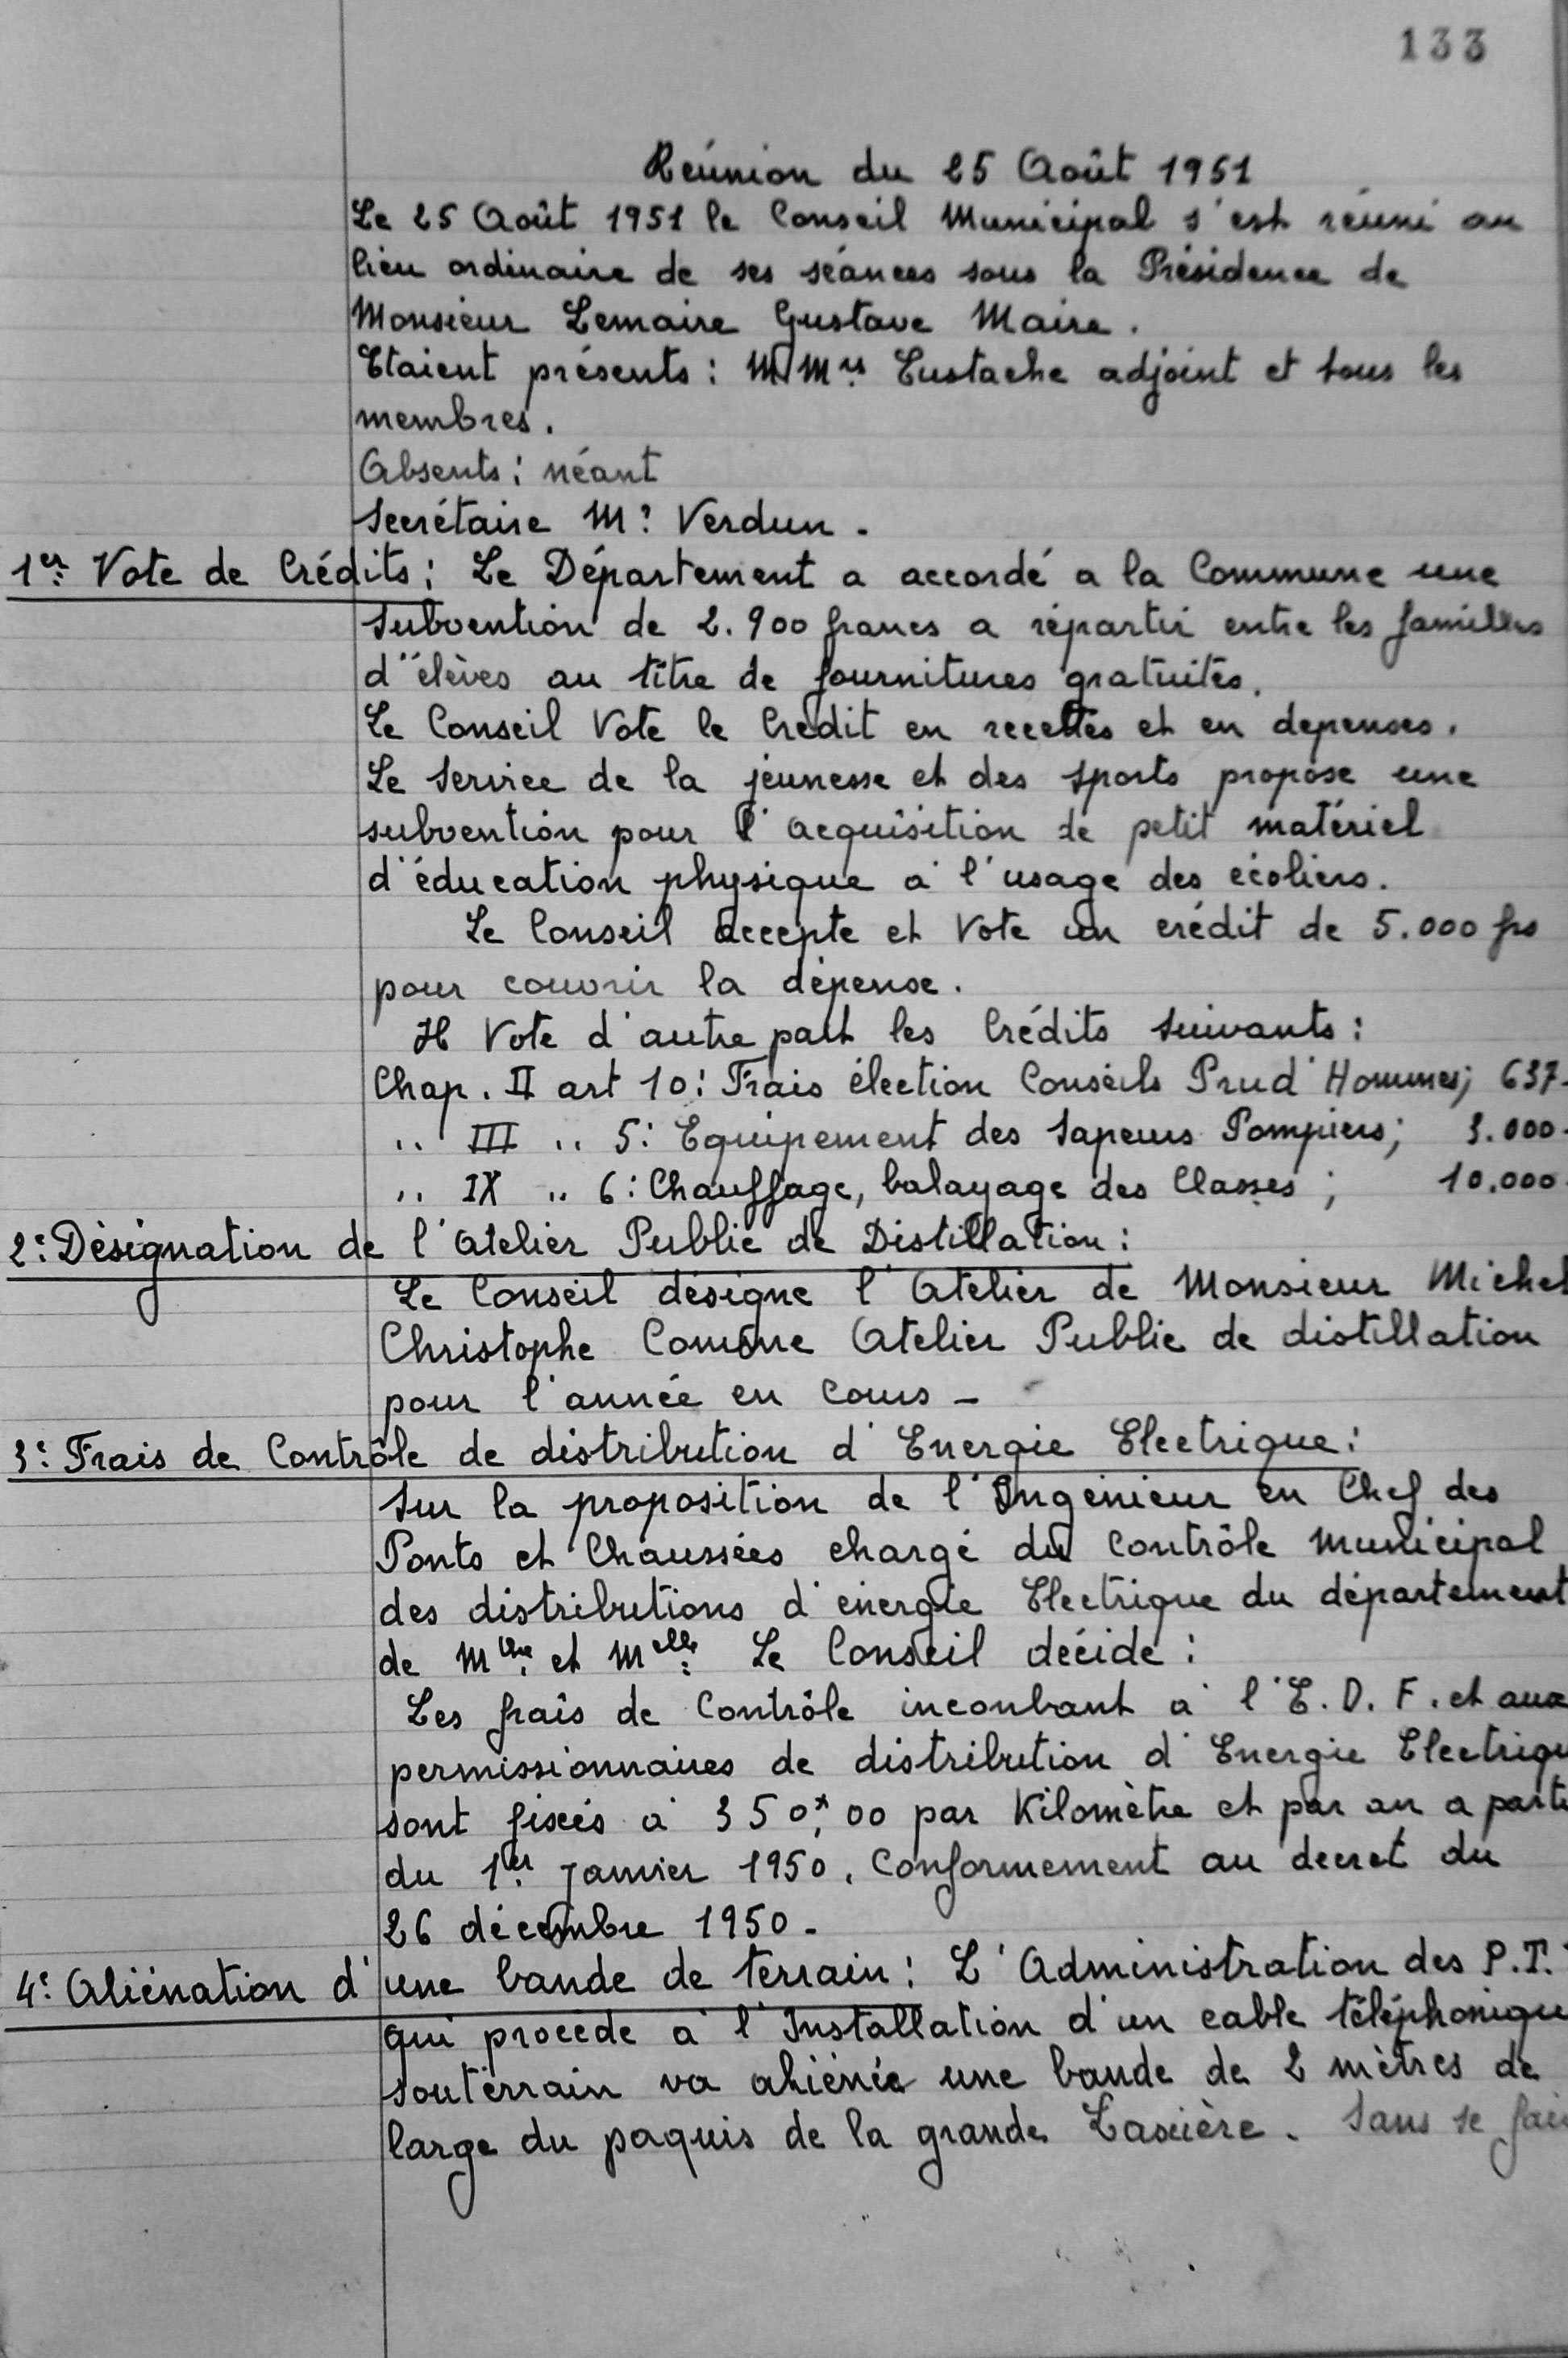 133
Réunion du 25 Août 1951
Le 25 Août 1951 le Conseil Municipal s'est réuni au
lieu ordinaire de ses séances sous la Présidence de
Monsieur Lemaire Gustave Maire.
Etaient présents : MMrs Eustache adjoint et tous les
membres.
Absents : néant
Secrétaire Mr Verdun.
1er Vote de Crédits : Le Département a accordé a la Commune une
Subvention de 2.900 francs a répartir entre les familles
d'élèves au titre de fournitures gratuites.
Le Conseil Vote le Crédit en recettes et en depenses.
Le Service de la jeunesse et des sports propose une
subvention pour l'acquisition de petit matériel
d'éducation physique à l'usage des écoliers.
Le Conseil accepte et Vote un crédit de 5.000 frs
pour couvrir la dépense.
Il Vote d'autre part les Crédits suivants :
Chap. II art 10 : Frais élection Conseils Prud'Hommes ; 637-
" III " 5 : Equipement des Sapeurs Pompiers ; 3.000-
" IX " 6 : Chauffage, balayage des Classes ; 10.000
2e Désignation de l'Atelier Public de Distillation :
Le Conseil désigne l'Atelier de Monsieur Michel
Christophe Comme Atelier Public de distillation
pour l'année en cours -
3e Frais de Contrôle de distribution d'Energie Electrique :
Sur la proposition de l'Ingénieur en Chef des
Ponts et Chaussées chargé du Contrôle Municipal
des distributions d'énergie Electrique du département
de Mthe et Melle Le Conseil décide :
Les frais de Contrôle inconbant à l'E.D.F. et aux
permissionnaires de distribution d'Energie Electriqu
sont fixés à 350,00 par Kilomètre et par an a parti
du 1er Janvier 1950, Conformement au decret du
26 décembre 1950.
4e Aliénation d'une bande de terrain : L'Administration des P.T.
qui procède à l'Installation d'un cable téléphonique
souterrain va aliénée une bande de 2 mètres de
large du paquis de la grande. Sans se fai